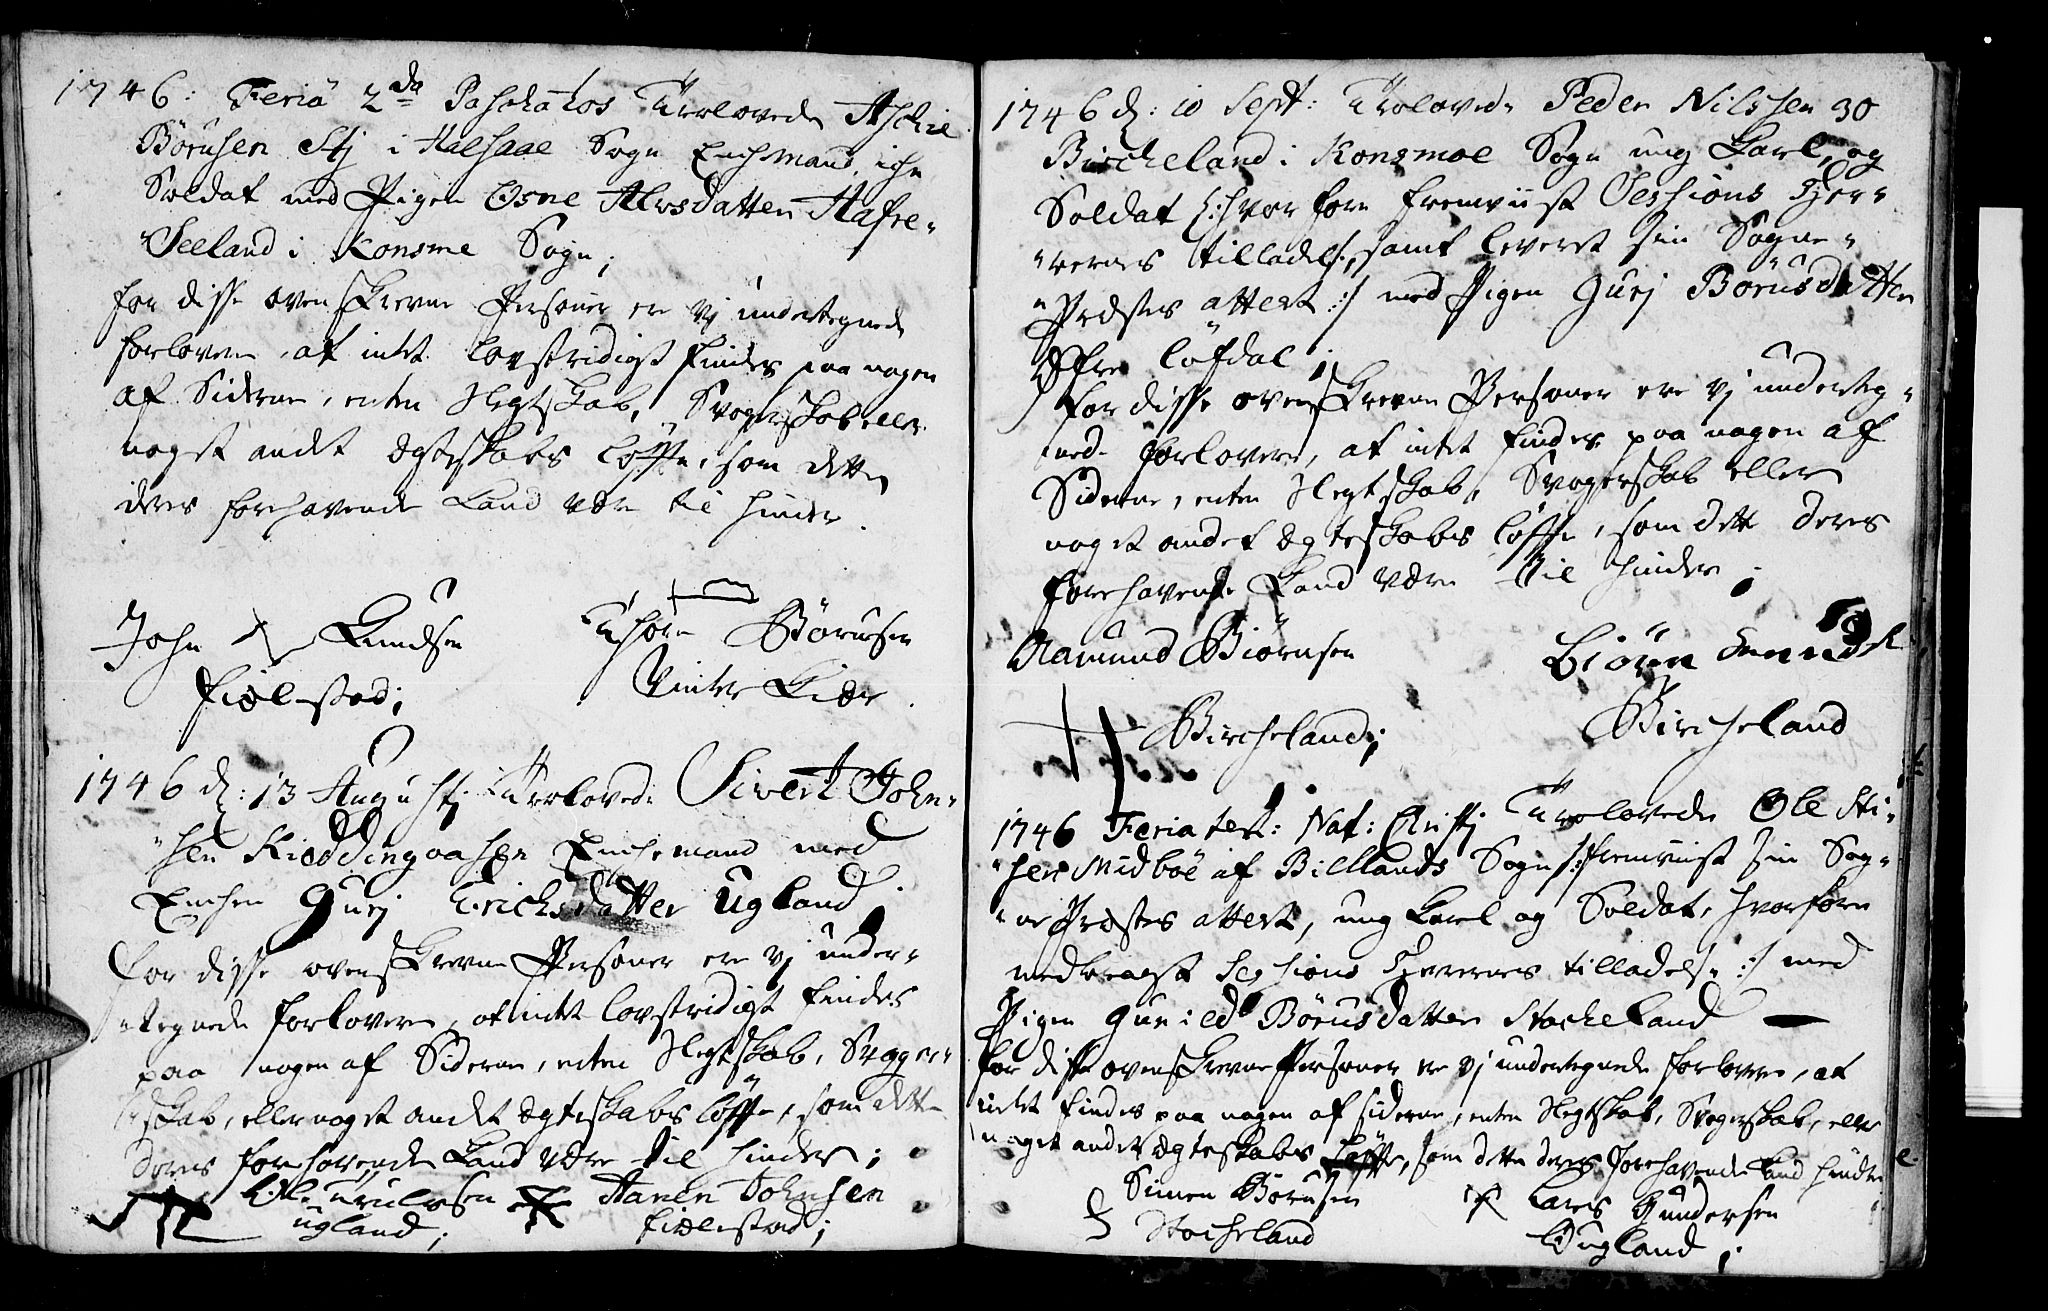 1746: Feria 2da Paschatos Trolovede Aschie
Børusen Stj i Halsaae Sogn Enchmand iche
Soldat med Pigen Osne Alvsdatten Hafre-
-Seeland i Konsme Sogn;
for disse ovenskrevne Persner ere vj undertegnede
forlovere, at intet lovstridigt findes paa nogen
af Siderne, enten Slegtskab, Svogerskab eller
noget andet ægteskabs løffte, som dette
deres forehavende Kand være til hinder.
John Knudsen
Fiælestad;
Thore Børusen
Vintr Kiær
1746 d: 13 Augustj Trolovede Sivert John-
-sen Kiøddingaasen Enchemand med
Enchen Gurj Erichsdatter Ugland;
for disse ovenskrevne Personer ere vj under-
-tegnede forlovere, at intet lovstridigt findes
paa nogen af Siderne, enten Slegtskab, Svoger-
-skab, eller noget andet ægteskabs løffte, som dette
deres forehavende Kand være til hinder;
Ole Trulssen
Ugland;
Aanen Johnsen
Fiælestad;
1746 d: 10 Sept: Trolovede Peder Nilssen 30
Bircheland i Konsmoe Sogn ung Karl, og
Soldat /: hvorfore fremviist Sessions Her-
-rernes tilladelse, samt leveret sin Sogne-
-Præstes attest :/ med Pigen Gurj Børusdatter
Øfre Løfdal;
for disse ovenskrevne Personer ere vj underteg-
nede forlovere, at intet findes paa nogen af
Siderne, enten Slegtskab, Svogerskab eller
noget andet ægteskabs løffte, som dette deres
forehavende Kand være til hinder;
Aamund Biørnsen
Bircheland;
Biørn
Bircheland
1746 Feria ter: Nat: Christj Trolovede Ole Sti-
-sen Midbøe af Biellands Sogn /: fremviist sin Sog-
-ne Præstes attest, ung Karl og Soldat, hvorfore
nedbragt Sessions Herrernes tilladelse :/ med
Pigen Gunild Børusdatter Stocheland
for disse ovenskrevne Personer ere vj undertegnede forlovere, at
intet findes paa nogen af siderne, enten Slegtskab, Svogerskab, eller
noget andet ægteskabs løffte, som dette deres forehavende Kand hindre
Simen Børusen
Stocheland
Lars Gundersen
Ougland;